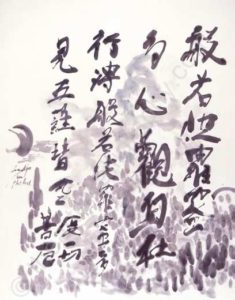 般若波羅蜜
多心觀自在
行深般若波羅蜜多
見五蘊皆空
度一切
苦厄